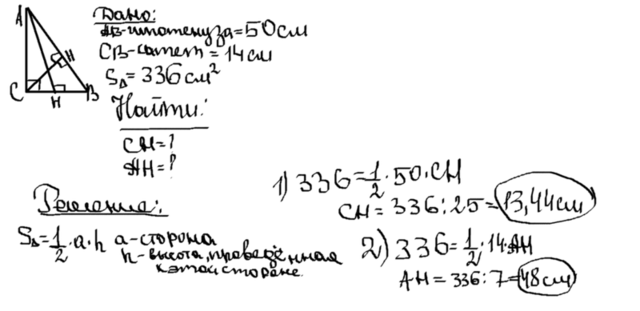 A
H
C
H
B
Дано:
AB-гипотенуза=50см
CB-катет=14см
S△=336см²
Найти:
CH=?
AH=?
Решение:
S△=1/2·a·h a-сторона
h-высота, проведённая
к этой стороне.
1) 336=1/2·50·CH
CH=336:25=13,44см
2) 336=1/2·14·AH
AH=336:7=48см